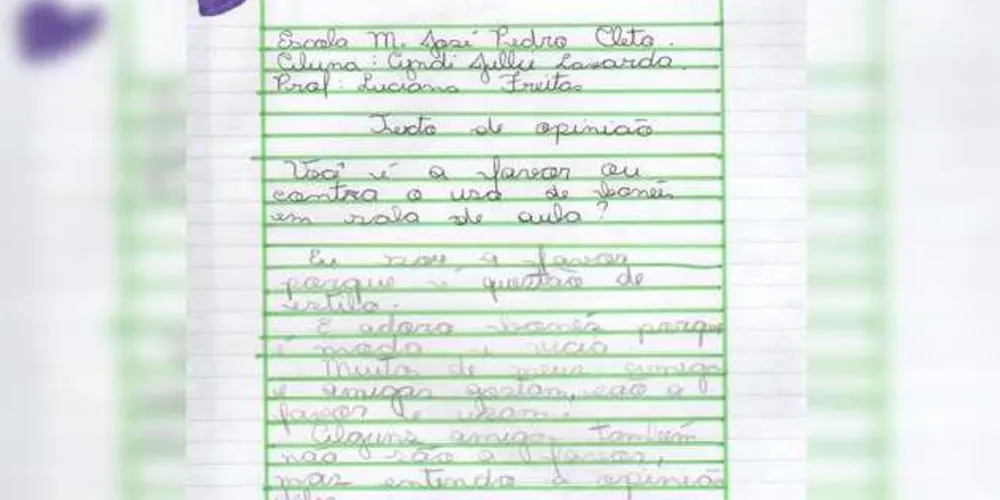 Escola M. José Pedro Cleto.
Aluna: Cyndi Lasarda.
Prof: Luciana Freitas
Texto de opinião
Você é a favor ou
contra o uso de bonés
em sala de aula?
Eu sou a favor
porque é questão de
estilo.
E adoro bonés porque
é moda e vício
Muitos de meus amigos
e amigas gostam, são a
favor e usam.
Alguns amigos também
não são a favor,
mas entendo a opinião